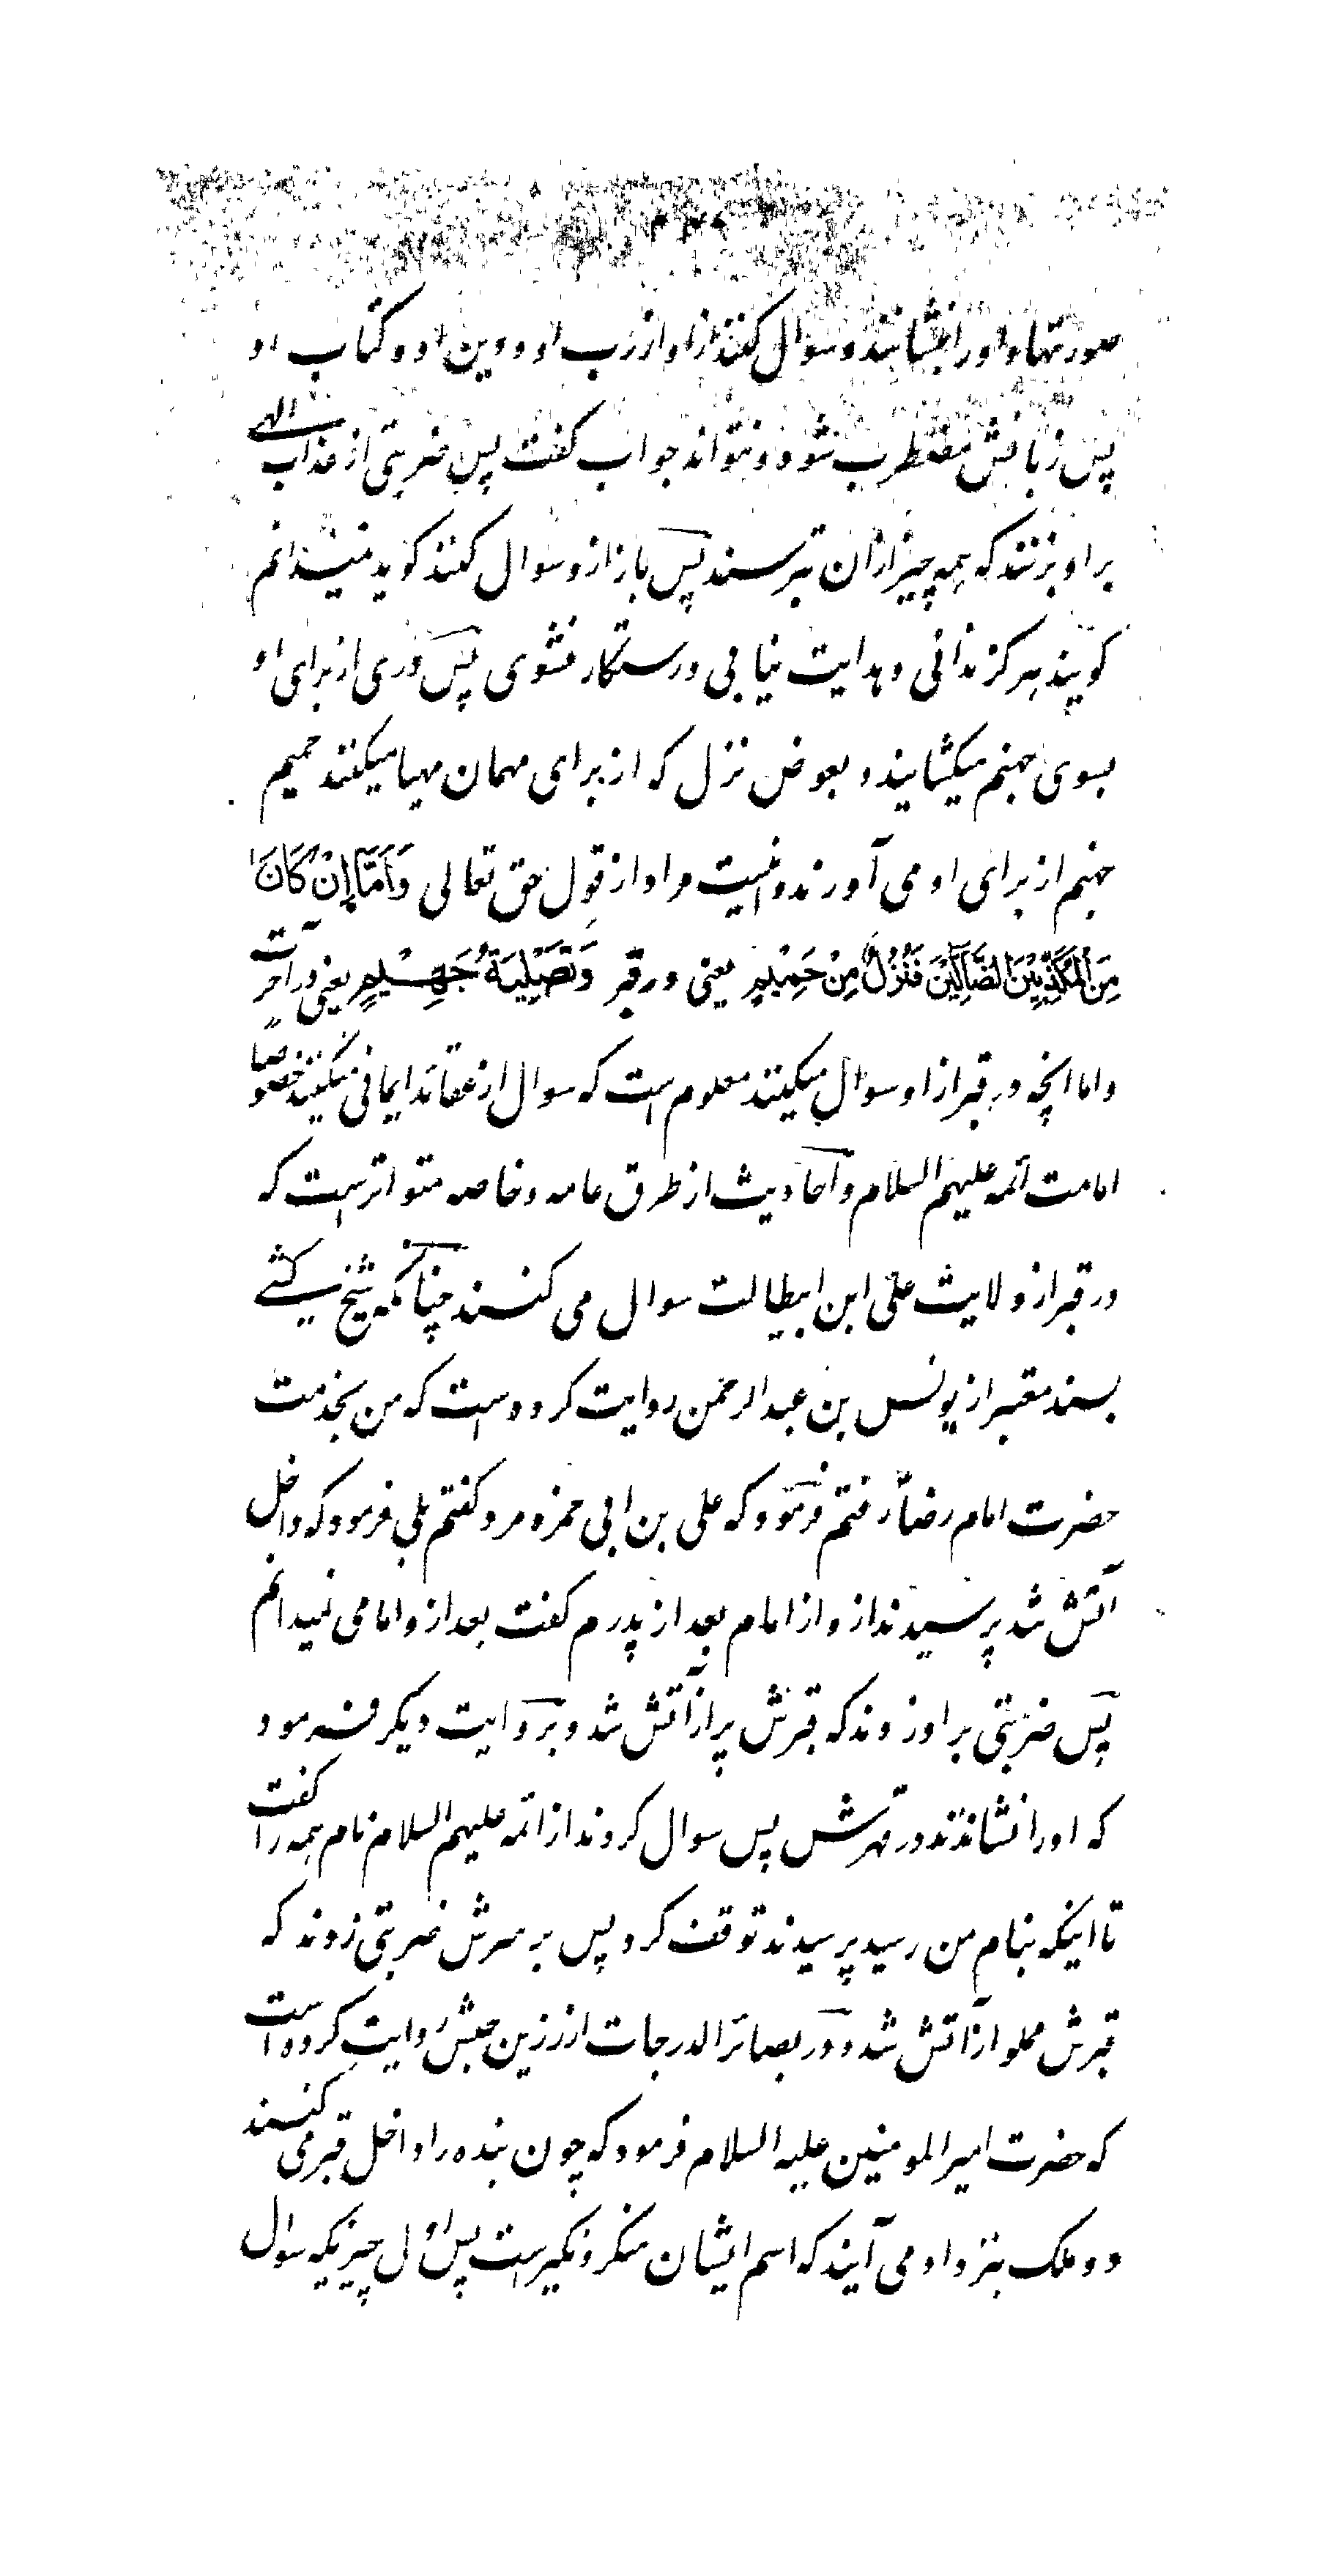 صورتها و اورا بنشانند و سوال کنند از او از رب او و دین او و کتاب او
پس زبانش مضطرب شود و نتواند جواب گفت پس ضربتی از عذاب الهی
بر او بزنند که همه چیز ازان بترسند پس باز ازو سوال کنند کوید نمیدانم
کویند هرکز ندانی و هدایت نیابی و رستکار نشوی پس دری از برای او
بسوی جهنم میکشایند و بعوض نزل که از برای مهمان مهیا میکنند حمیم
جهنم از برای او می آورند و اینست مراد از قول حق تعالی وَاَمَّا اِنْ كَانَ
مِنَ الْمُكَذِّبِيْنَ الضَّالِّيْنَ فَنُزُلٌ مِنْ حَمِيْمٍ یعنی در قبر وَتَصْلِيَةُ جَحِيْمٍ یعنی در آخرت
و اما انچه در قبر از او سوال میکنند معلوم است که سوال از عقائد ایمانی میکنند خصوصا
امامت ائمه علیهم السلام و احادیث از طرق عامه و خاصه متواتر است که
در قبر از ولایت علی ابن ابیطالب سوال می کنند چنانکه شیخ کشی
بسند معتبر از یونس بن عبد الرحمن روایت کرده است که من بخدمت
حضرت امام رضاؑ رفتم فرمود که علی بن ابی حمزه مرد کفتم بلی فرمود که داخل
آتش شد پرسیدند از و از امام بعد از پدرم کفت بعد از و امامی نمیدانم
پس ضربتی بر او زدند که قبرش پر از آتش شد و بروایت دیکر فرمود
که اورا نشاندند در قبرش پس سوال کردند از ائمه علیهم السلام نام همه را کفت
تا اینکه بنام من رسید پرسیدند توقف کرد پس بر سرش ضربتی زدند که
قبرش مملو از آتش شد و در بصائر الدرجات از زرین حبیش روایت کرده است
که حضرت امیر المومنین علیه السلام فرمود که چون بنده را داخل قبر می کنند
دو ملک بنزد او می آیند که اسم ایشان منکر و نکیر است پس اول چیزیکه سوال